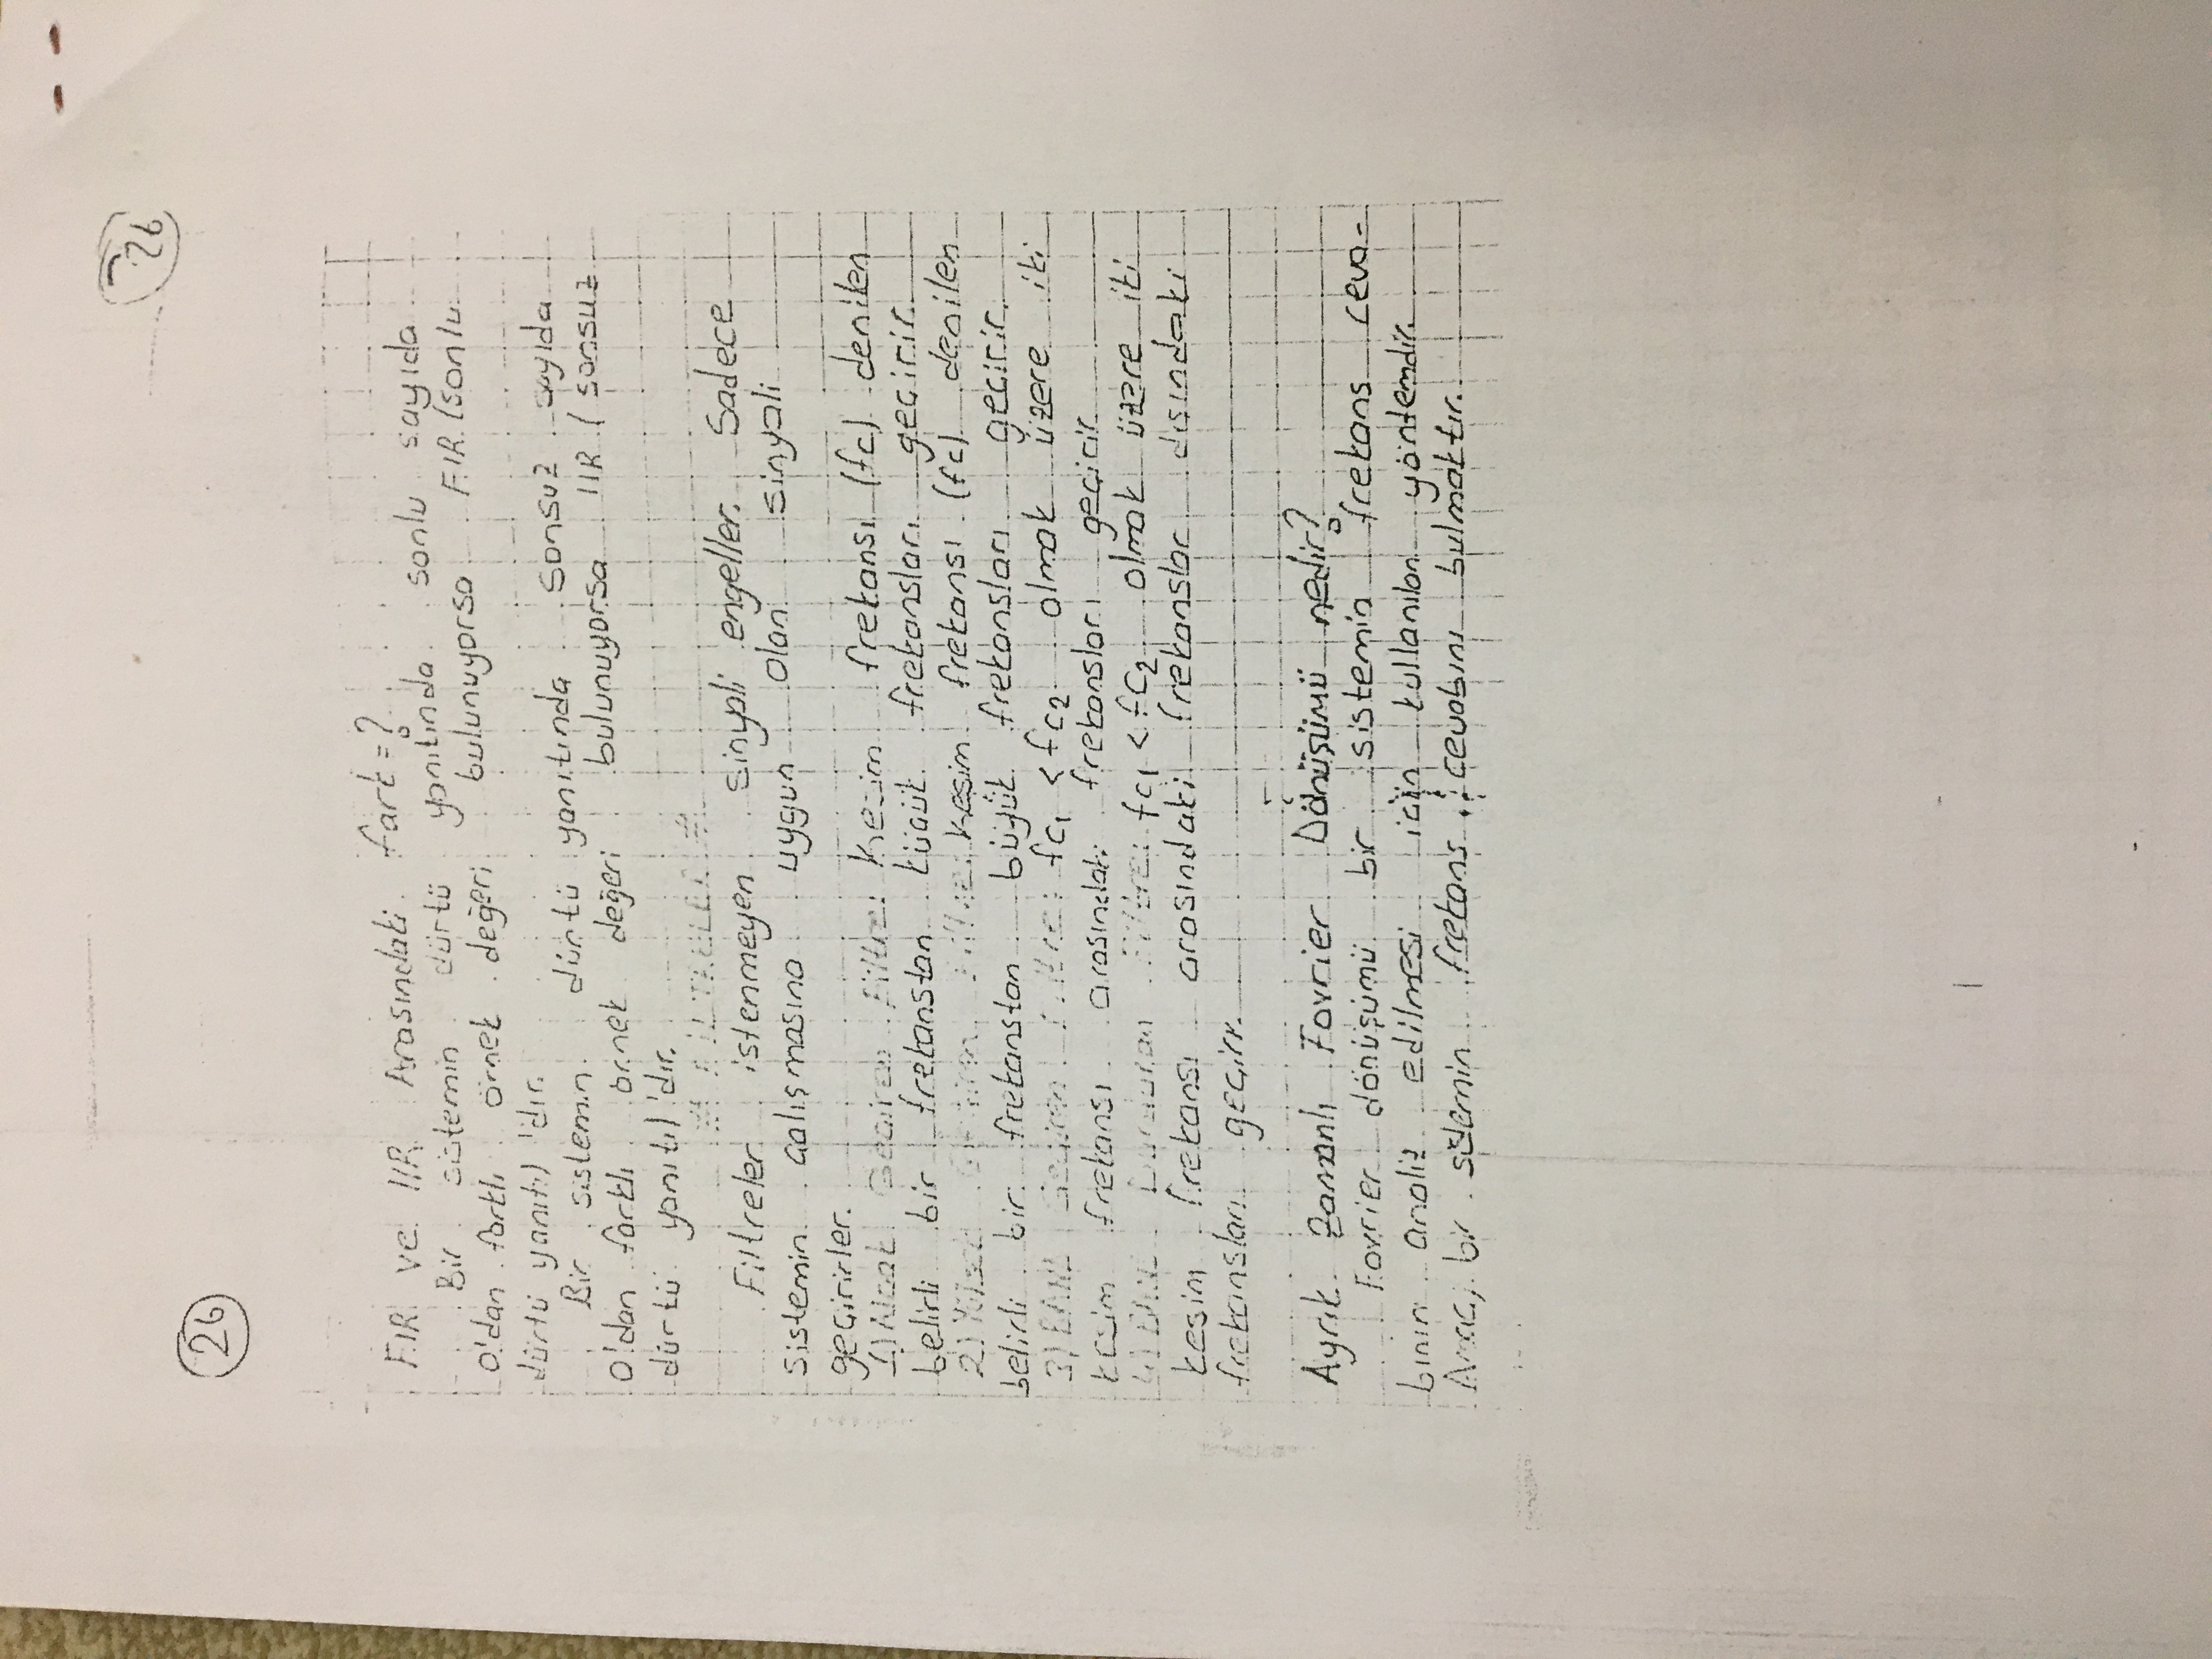 26
26
FIR ve IIR Arasındaki fark=?
Bir sistemin dürtü yanıtında sonlu sayıda
0'dan farklı örnek değeri bulunuyorsa FIR (sonlu
dürtü yanıtı)'dır.
Bir sistemin dürtü yanıtında sonsuz sayıda
0'dan farklı örnek değeri bulunuyorsa IIR (sonsuz
dürtü yanıtı)'dır.
# FİLTRELER #
Filtreler istenmeyen sinyali engeller. Sadece
sistemin çalışmasına uygun olan sinyali
geçirirler.
1) Alçak Geçiren Filtre: Kesim frekansı (fc) denilen
belirli bir frekanstan küçük frekansları geçirir.
2) Yüksek Geçiren Filtre: Kesim frekansı (fc) denilen
belirli bir frekanstan büyük frekansları geçirir.
3) BAND Geçiren Filtre: fc1 < fc2 olmak üzere iki
kesim frekansı arasındaki frekansları geçirir.
4) BAND Durduran Filtre: fc1 < fc2 olmak üzere iki
kesim frekansı arasındaki frekanslar dışındaki
frekansları geçirir.
Ayrık Zamanlı Fourier Dönüşümü nedir?
Fourier dönüşümü bir sistemin frekans ceva-
bının analiz edilmesi için kullanılan yöntemdir.
Amaç, bir sistemin frekans cevabını bulmaktır.